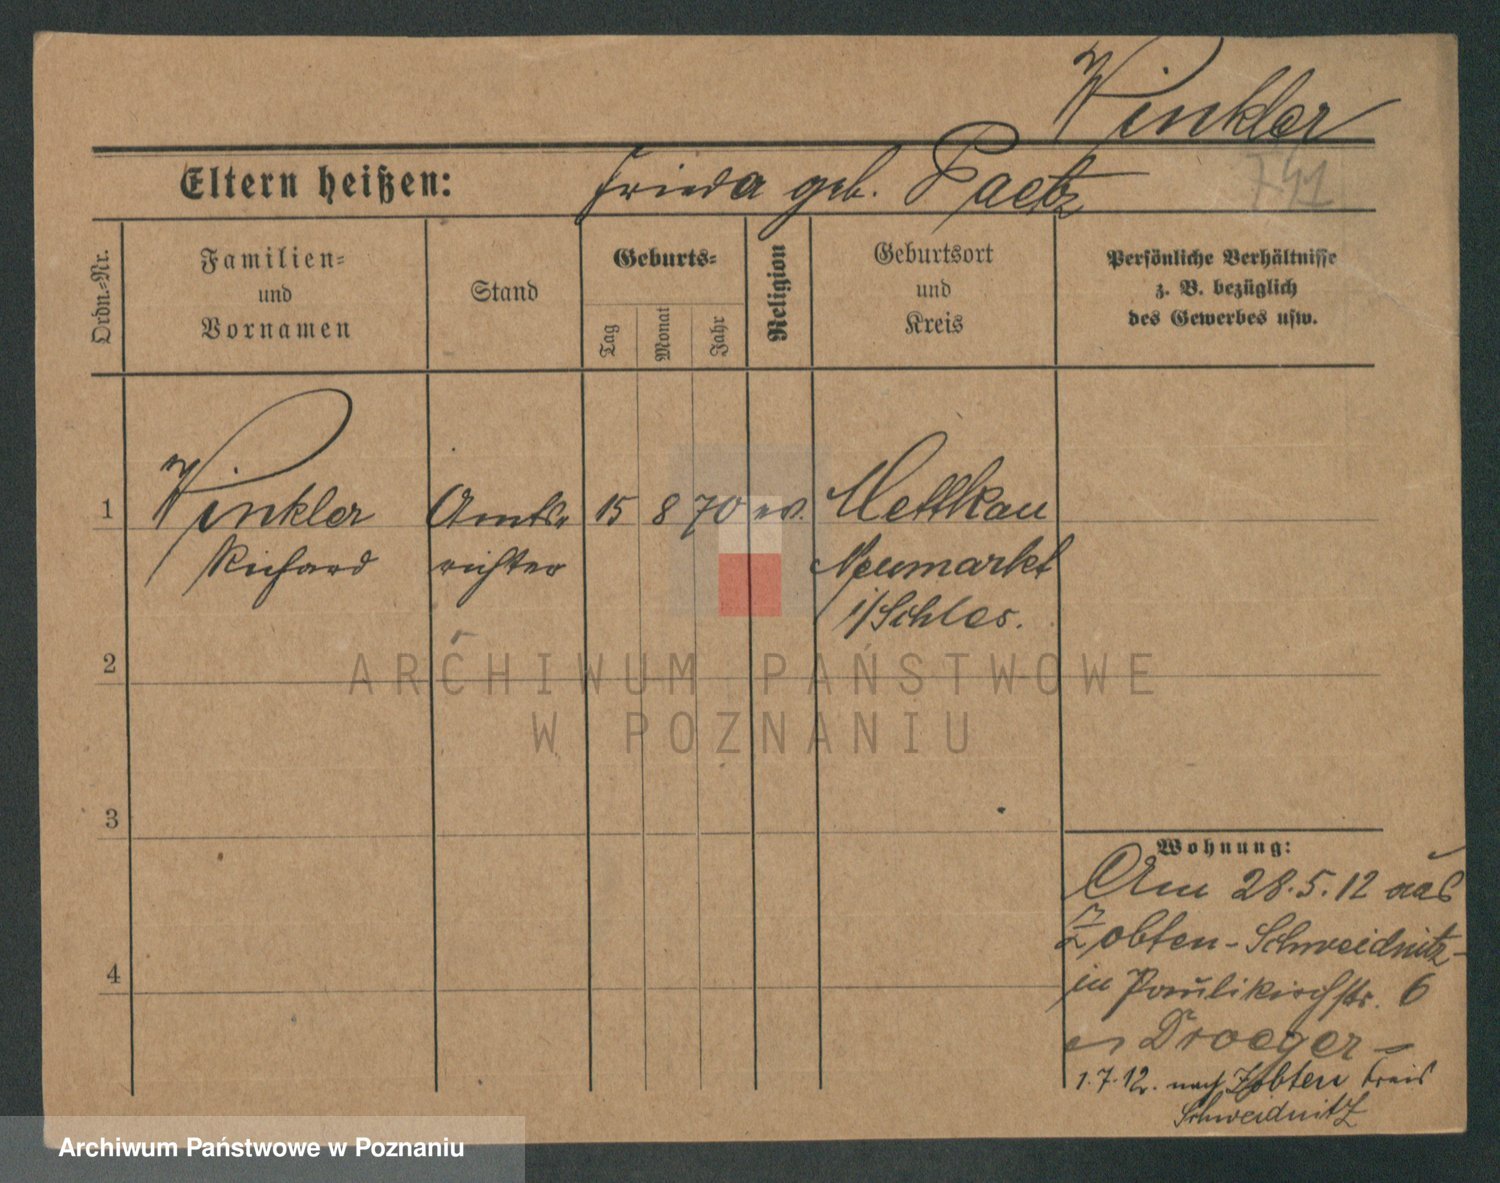 Winkler
Eltern heißen: Frieda geb. Paetz
741
Ordn.-Nr.
Familien-
und
Vornamen
Stand
Geburts-
Tag
Monat
Jahr
Religion
Geburtsort
und
Kreis
Persönliche Verhältnisse
z. B. bezüglich
des Gewerbes usw.
1 Winkler Amts- 15 8 70 ev. Mettkau
Richard richter Neumarkt
i/Schles.
2
ARCHIWUM PAŃSTWOWE
W POZNANIU
3
Wohnung:
Am 28.5.12 aus
Zobten-Schweidnitz-
in Paulikirchstr. 6
Droeger-
1.7.12. nach Zobten Kreis
Schweidnitz
4
Archiwum Państwowe w Poznaniu